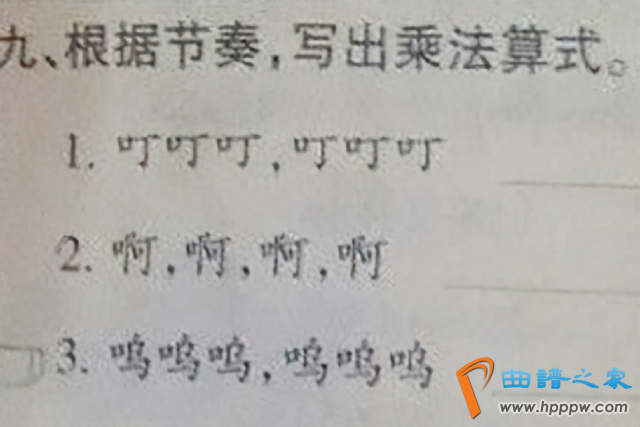 九、根据节奏，写出乘法算式。
1. 叮叮叮，叮叮叮
2. 啊，啊，啊，啊
3. 呜呜呜，呜呜呜
曲谱之家
www.hppw.com